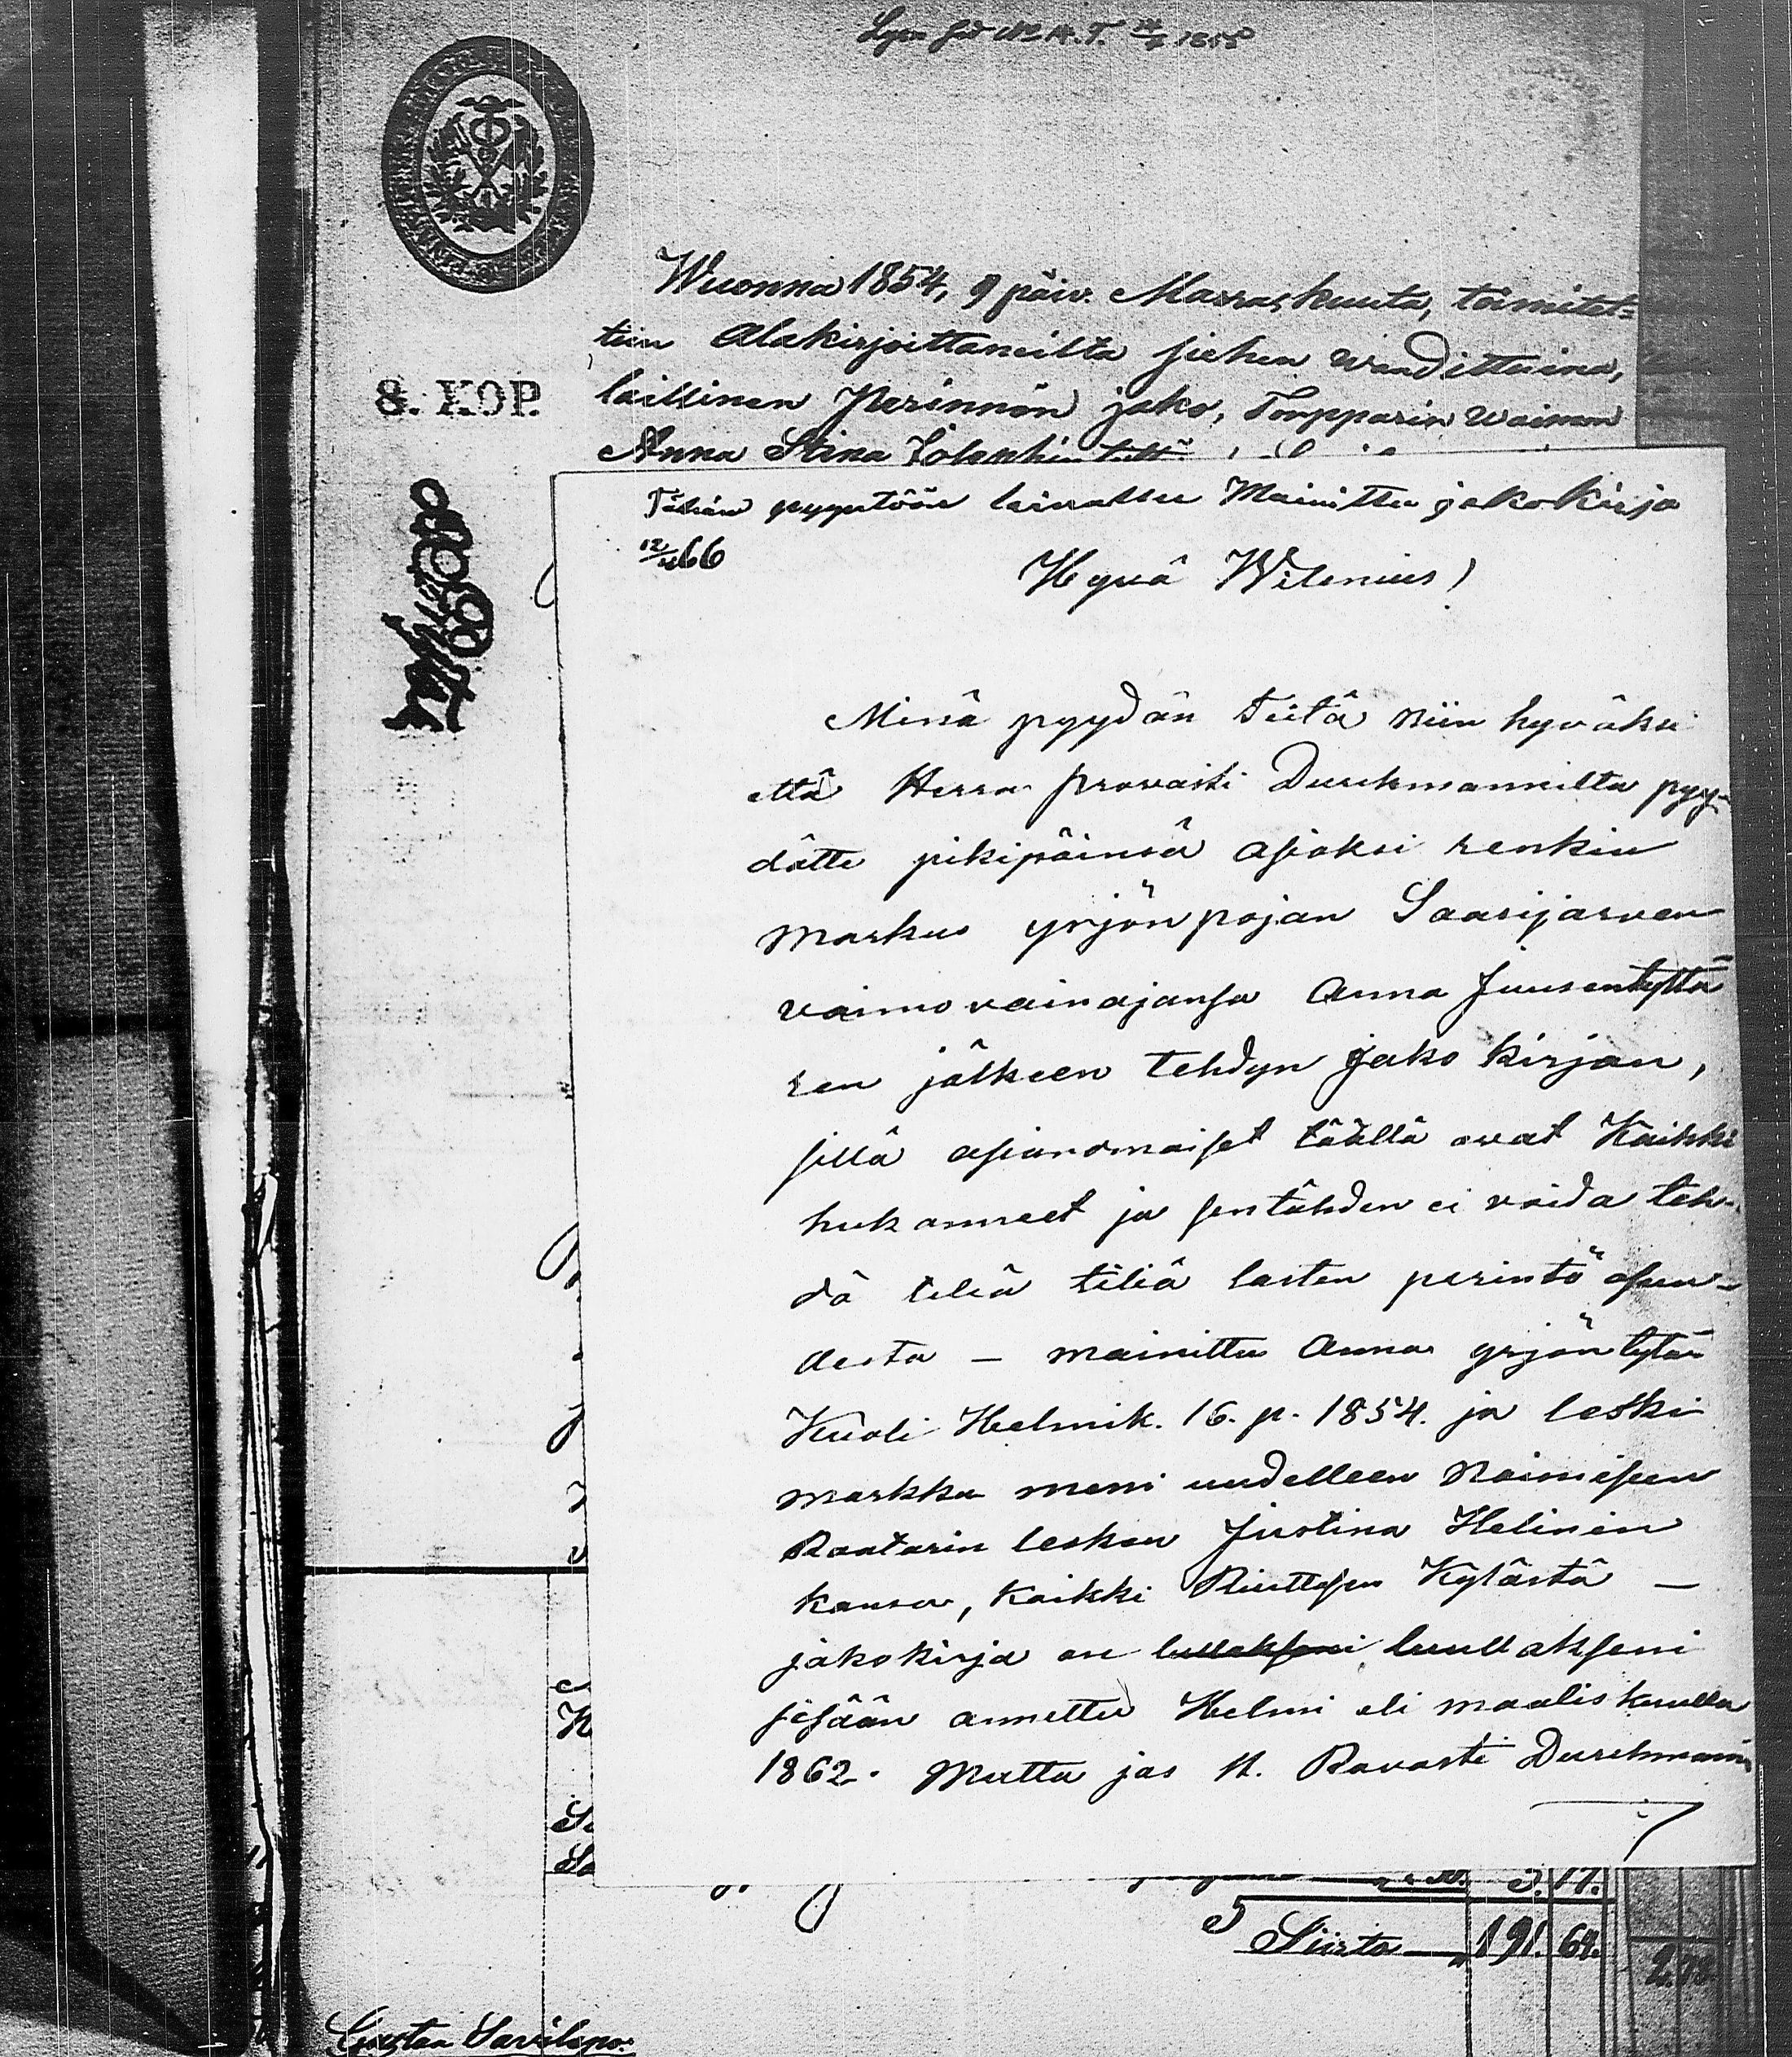 1855
Wuonna 1854, 9 päiv. Marraskuuta, toimitet=
tiin Alakirjoittaneilta siehen waadittuina,
laillinen Perinnön jako, Torpparin waimon
Anna Stina
8. KOP.
Tähän pyyntöön leinattu Mainittu jakokirja
12/4 66
Hyvä Wilenius!
Minä pyydän Teitä niin hyväksi
että Herra provasti Durchmannilta pyy-
dätte pikipäinsä asioksi renkin
Markus yrjönpojan Saarijarven
vaimovainajansa Anna Juusentyttä
ren jälkeen tehdyn Jako kirjan,
sillä asianomaiset täällä ovat Kaikki
hukanneet ja sentähden ei voida teh-
dä tiliä lasten perintö osuu-
desta — mainittu Anna yrjöntytär
Kuoli Helmik. 16. p. 1854. ja leski
markku meni uudelleen Naimiseen
Raatarin lesken Justina Helinin
kansa, kaikki Kylästä —
jakokirja on luullakseni luullakseni
sisään annettu Helmi eli maaliskuulla
1862. Mutta jos H. Rovasti Durchmann
K
S
Sa
3. 17.
Siirto 191. 64.
2.
Gustav